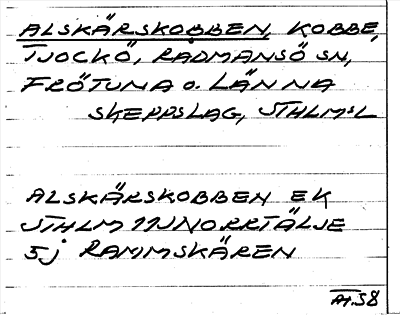 ALSKÄRSKOBBEN, KOBBE,
TJOCKÖ, RADMANSÖ SN,
FRÖTUNA O. LÄNNA
SKEPPSLAG, STHLMSL
ALSKÄRSKOBBEN EK
STHLM 11JNORRTÄLJE
5j RAMMSKÄREN